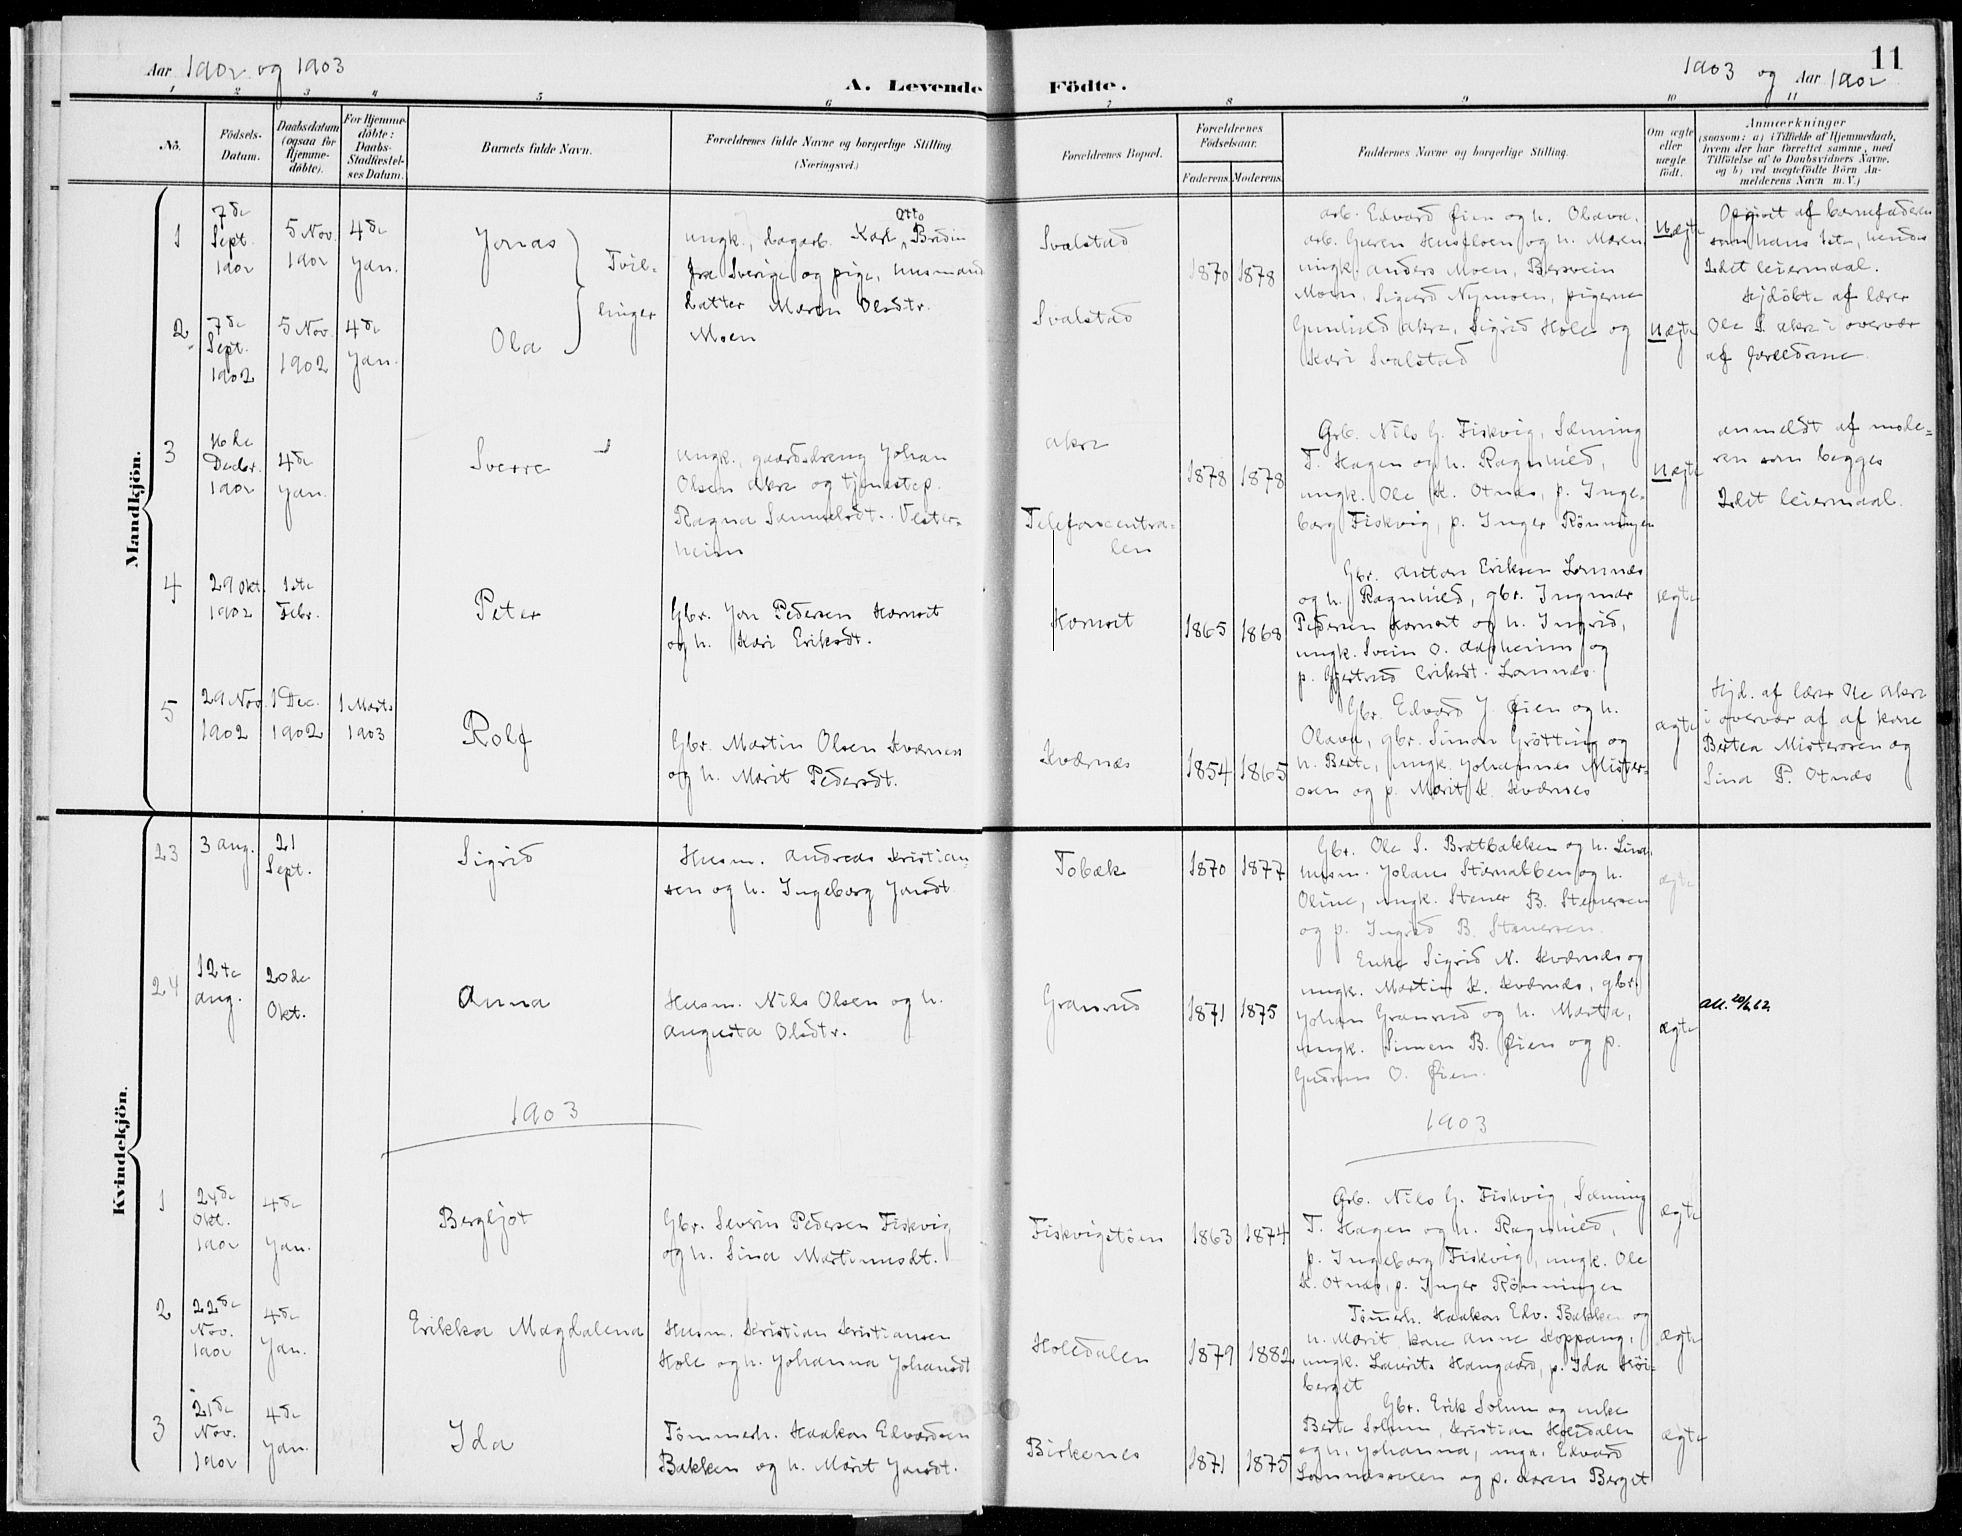 Aar 1902 og 1903
A. Levende Födte.
1903 og Aar 1902
11
1 2 3 4 5 6 7 8 9 10 11
No.
Födsels-
Datum.
Daabsdatum
(ogsaa for
Hjemme-
döbte).
For Hjemme-
döbte:
Daabs-
Stadfæstel-
ses Datum.
Barnets fulde Navn.
Forældrenes fulde Navne og borgerlige Stilling.
(Næringsvei.)
Forældrenes Bopæl.
Forældrenes
Födselsaar.
Faderens. Moderens.
Faddernes Navne og borgerlige Stilling.
Om ægte
eller
uægte
födt.
Anmærkninger
(saasom: a) i Tilfælde af Hjemmedaab,
hvem der har forrettet samme, med
Tilföielse af to Daabsvidners Navne,
og b) ved uægtefödte Börn An-
melderens Navn m. V.)
Mandkjön.
1
7de
Sept.
1902
5 Nov.
1902
4de
Jan.
Jonas
Tvil-
linger
Ungk., dagarb. Karl Otto Bredin
fra Sverige og pige, husmands
datter Maren Olsdtr.
Moen
Svalstad
1870 1878
arb. Edvard Øien og h. Olava,
arb. Gieren Husfloen og h. Maren
ungk. Anders Moen, Bersvein
Moen, Sigurd Nymoen, pigerne
Gunhild Akre, Sigrid Hole og
Kari Svalstad
Uægte
Opgivet af barnefaderen
som hans 1ste, hendes
2det leiermaal.
Hjdöbte af lærer
Ole S. Akre i overvær
af forældrene
2
7de
Sept.
1902
5 Nov.
1902
4de
Jan.
Ola
Svalstad
Uægte
3
16de
Decbr.
1902
4de
Jan.
Sverre
Ungk., gaardsdreng Johan
Olsen Akre og tjenestep.
Ragna Samuelsdt. Vester-
heim
Akre
Telefoncentra-
len
1878 1878
Grb. Nils G. Fiskvig, Sæming
T. Hagen og h. Ragnhild,
ungk. Ole K. Otnes, p. Inge-
borg Fiskvig, p. Inger Rönningen
Uægte
anmeldt af mode-
ren som begges
2det leiermaal.
4
29 Okt.
1902
1ste
Febr.
Peter
Gbr. Jon Pedersen Hornset
og h. Kari Eriksdt.
Hornset
1865 1868
Gbr. Anton Eriksen Lomnes
og h. Ragnhild, gbr. Ingmar
Pedersen Hornset og h. Ingrid,
ungk. Svein O. Aasheim og
p. Gjertrud Eriksdt. Lomnes.
ægte
5
29 Nov.
1902
1 Dec.
1902
1 Marts
1903
Rolf
Gbr. Martin Olsen Kværnes
og h. Marit Pedersdt.
Kværnes
1854 1865
Gbr. Edvard J. Øien og h.
Olava, gbr. Simon Grötting og
h. Berte, ungk. Johannes Mister-
osen og p. Marit K. Kværnes
ægte
Hjd. af lærer Ole Akre
i overvær af af kone
Bertea Misterosen og
Sina P. Otnes
Kvindekjön.
23
3 Aug.
21
Sept.
Sigrid
Husm. Andreas Kristian-
sen og h. Ingeborg Jonsdt.
Tobæk
1870 1877
Gbr. Ole S. Bratbakken og h. Sina,
husm. Johans Stærnabben og h.
Oline, ungk. Stener B. Stenersen
og p. Ingrid B. Stenersen.
ægte
24
12te
Aug.
20de
Okt.
Anna
Husm. Nils Olsen og h.
Augusta Olsdtr.
Granrud
1871 1875
Enke Sigrid N. Kværnes og
ungk. Martin K. Kværnes, gbr.
Johan Granrud og h. Marta,
ungk. Simen B. Øien og p.
Gudrun O. Øien.
ægte
1903
1903
1
24de
Okt.
1902
4de
Jan.
Bergljot
Gbr. Severin Pedersen Fiskvig
og h. Sina Martinusdt.
Fiskvigstöen
1863 1874
Grb. Nils G. Fiskvig, Sæming
T. Hagen og h. Ragnhild,
p. Ingeborg Fiskvig, ungk. Ole
K. Otnes, p. Inger Rönningen
ægte
2
22de
Nov.
1902
4de
Jan.
Erikka Magdalena
Husm. Kristian Kristiansen
Hole og h. Johanna Johansdt
Holedalen
1879 1882
Tömmerh. Haakon Edv. Bakken og
h. Marit, kone Anne Koppang,
ungk. Laurits Haugaard, p. Ida Høi-
berget
ægte
3
21de
Nov.
1902
4de
Jan.
Ida
Tömmerh. Haakon Edvardsen
Bakken og h. Marit Jonsdt.
Birkenes
1871 1875
Gbr. Erik Solum og enke
Berte Solum, Kristian Holedalen
og h. Johanna, ungk. Edvard
Lomnesroen og p. Karen Berget
ægte